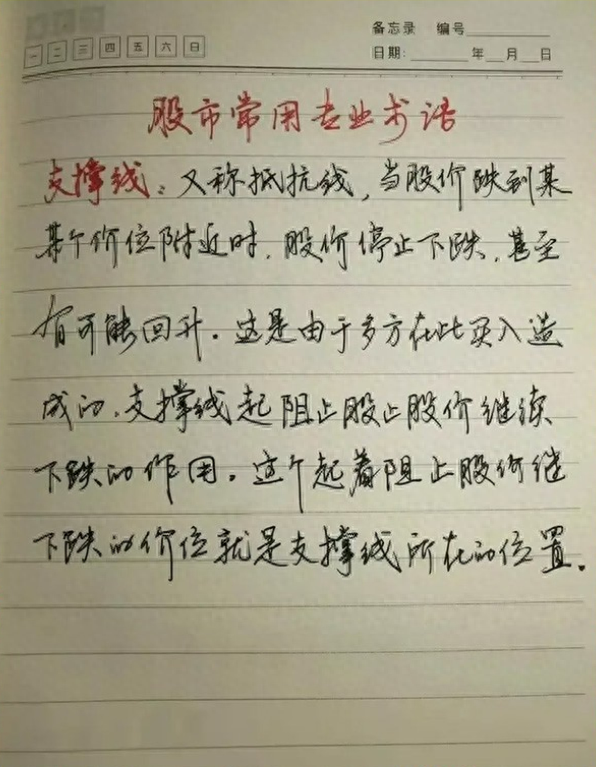 备忘录 编号
一 二 三 四 五 六 日
日期: 年 月 日
股市常用专业术语
支撑线:又称抵抗线,当股价跌到某
某个价位附近时,股价停止下跌,甚至
有可能回升。这是由于多方在此买入造
成的.支撑线起阻止股止股价继续
下跌的作用。这个起着阻止股价继
下跌的价位就是支撑线所在的位置.